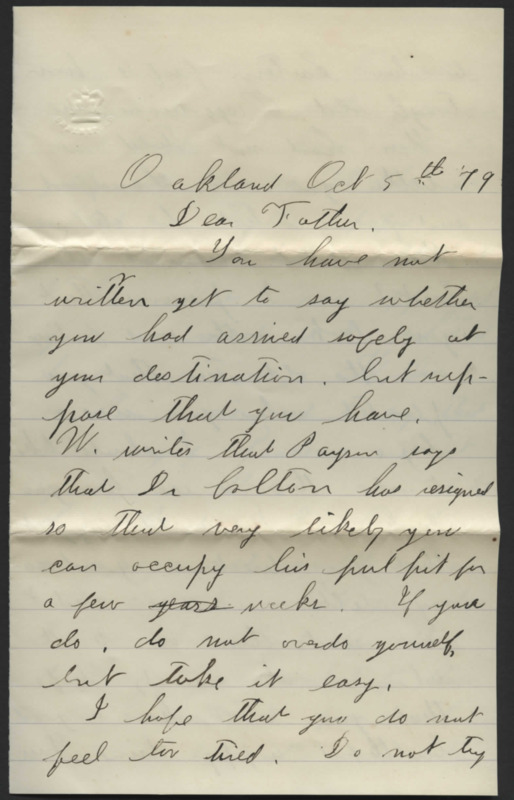 Oakland Oct 5th '79
Dear Father,
You have not
written yet to say whether
you had arrived safely at
your destination, but sup-
pose that you have.
W. writes that Payson says
that Dr Colton has resigned
so that very likely you
can occupy his pulpit for
a few years weeks. If you
do, do not overdo yourself,
but take it easy.
I hope that you do not
feel too tired. Do not try